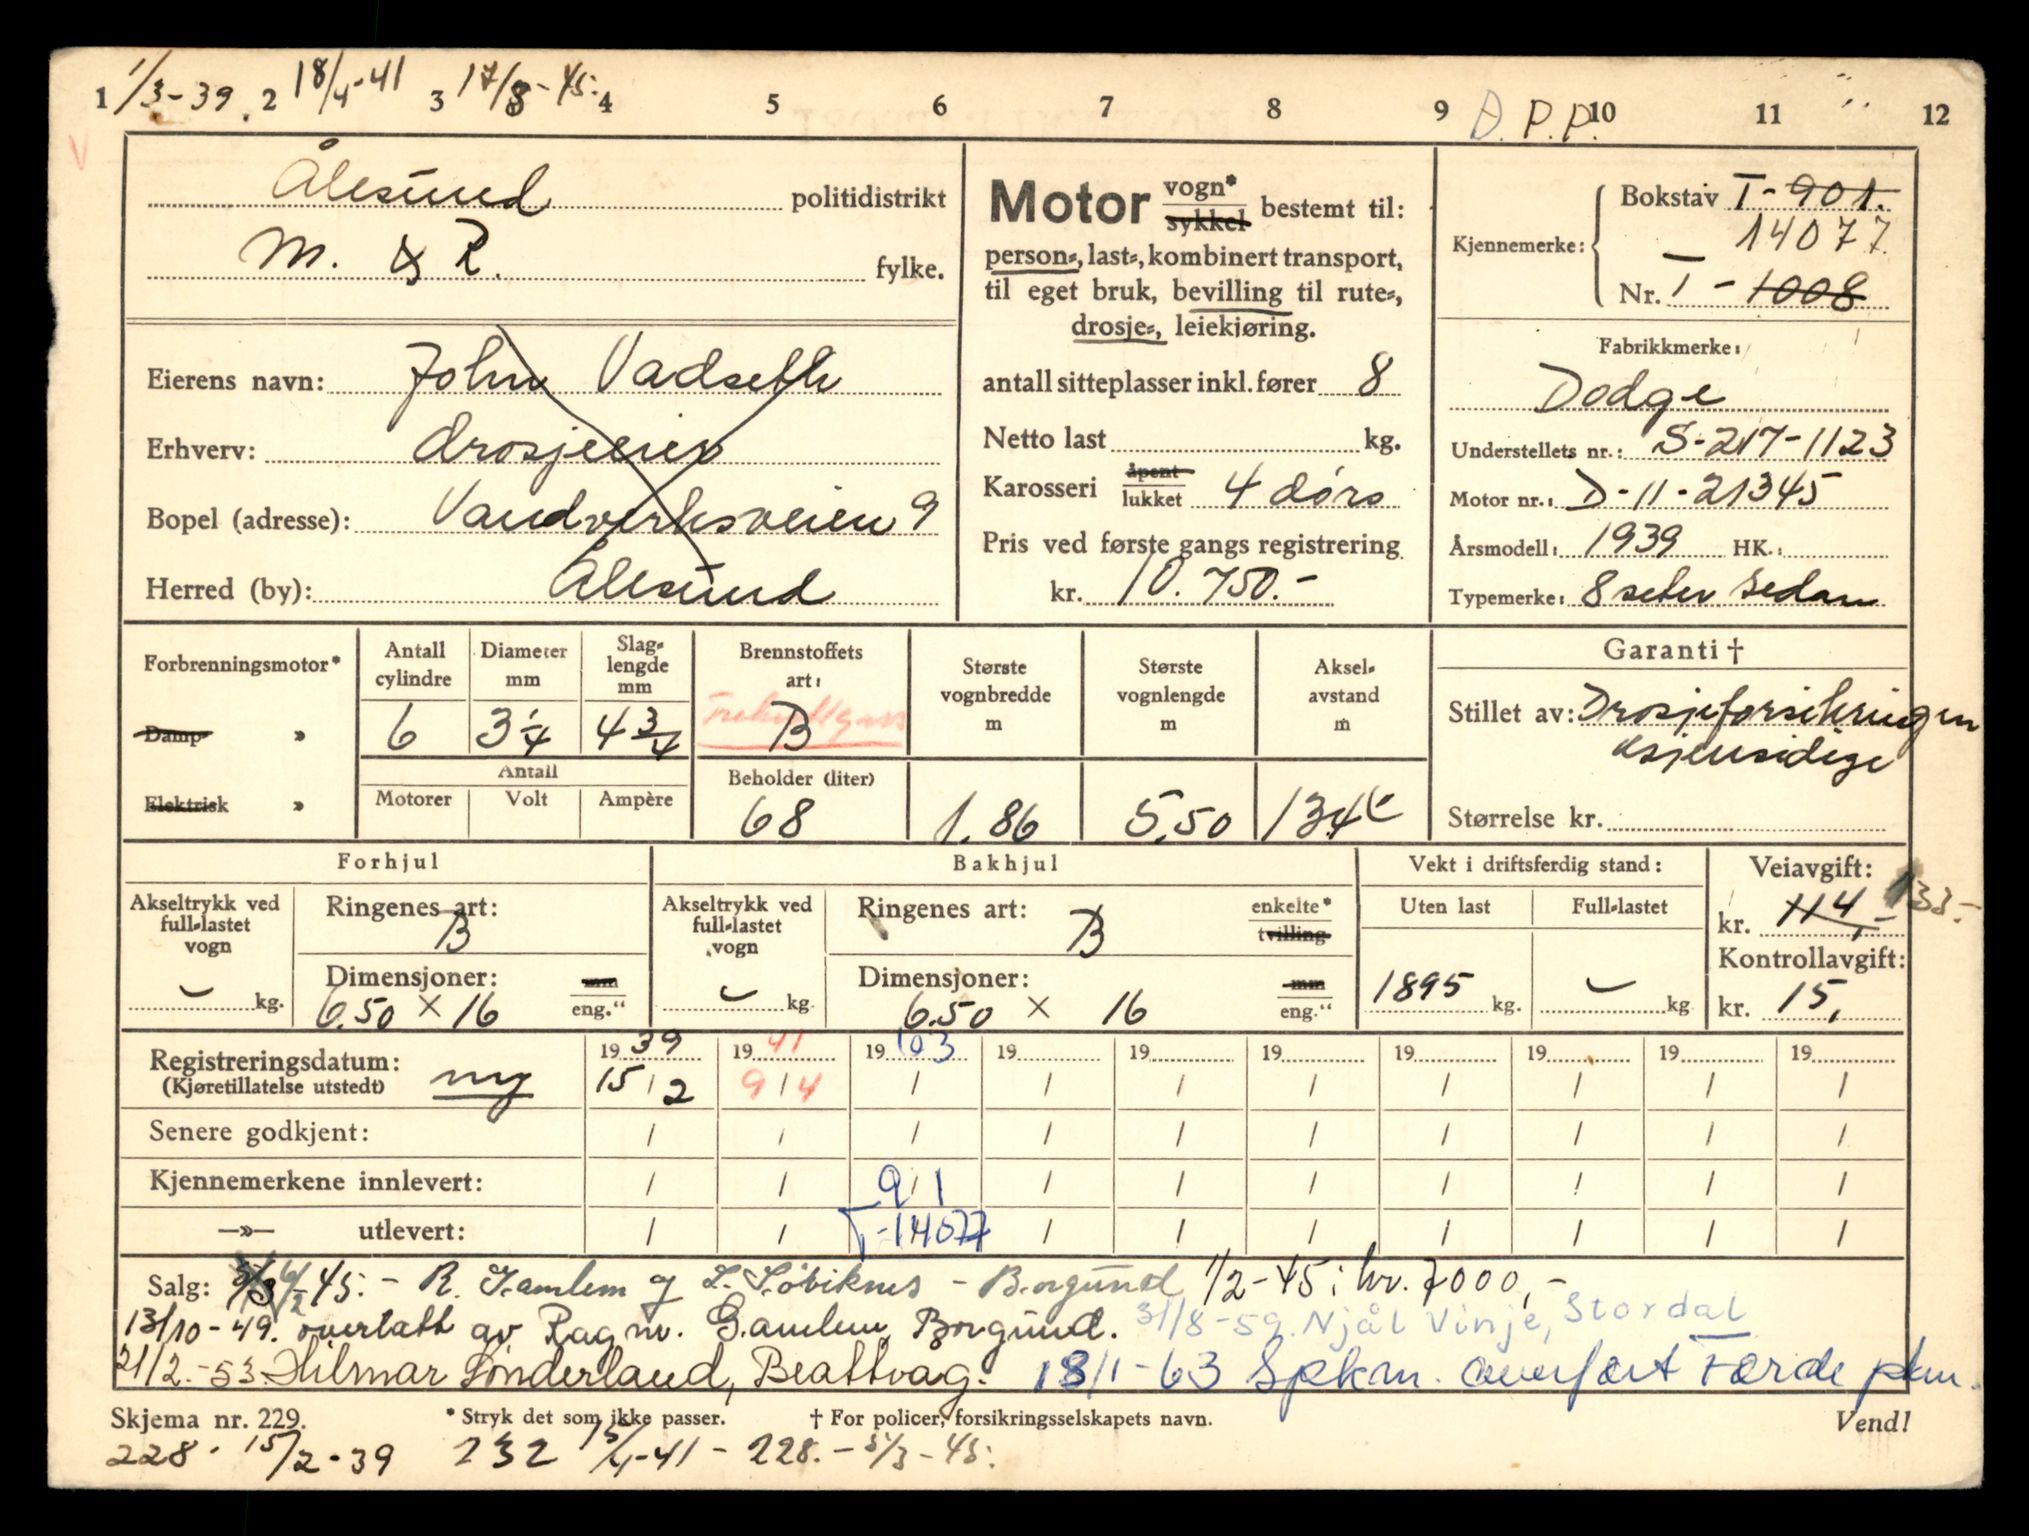 1 1/3-39. 2 18/4-41 3 17/8-45: 4 5 6 7 8 9 D. P.P. 10 11 12
V
Ålesund politidistrikt
M. & R. fylke.
Eierens navn: John Vadseth
Erhverv: drosjeeier
Bopel (adresse): Vandverksveien 9
Herred (by): Ålesund
Motor vogn* sykkel bestemt til:
person-, last-, kombinert transport,
til eget bruk, bevilling til rute-,
drosje-, leiekjøring.
antall sitteplasser inkl. fører 8
Netto last kg.
Karosseri åpent lukket 4 dørs
Pris ved første gangs registrering
kr. 10.750.-
Kjennemerke: Bokstav T-901.
14077
Nr. T-1008
Fabrikkmerke:
Dodge
Understellets nr.: S-217-1123
Motor nr.: D-11-21345
Årsmodell: 1939 HK.:
Typemerke: 8 seter Sedan
Forbrenningsmotor*
Damp- »
Elektrisk »
Antall cylindre 6
Diameter mm 3 1/4
Slag-lengde mm 4 3/4
Antall
Motorer Volt Ampère
Brennstoffets art:
Trekullgass
B
Beholder (liter)
68
Største vognbredde m
1.86
Største vognlengde m
5.50
Aksel-avstand m
Garanti †
Stillet av: Drosjeforsikringen
Gjensidige
Størrelse kr.
Forhjul
Akseltrykk ved full-lastet vogn
kg.
Ringenes art: B
Dimensjoner: mm eng."
6.50 × 16
Bakhjul
Akseltrykk ved full-lastet vogn
kg.
Ringenes art: B enkelte* tvilling
Dimensjoner: mm eng."
6.50 × 16
Vekt i driftsferdig stand:
Uten last Full-lastet
1895 kg. kg.
Veiavgift:
kr. 114,- 133.-
Kontrollavgift:
kr. 15,
Registreringsdatum: 19 39 19 41 19 63 19 19 19 19 19 19 19
(Kjøretillatelse utstedt) ny 15/2 9/4 / / / / / / / /
Senere godkjent: / / / / / / / / / /
Kjennemerkene innlevert: / / 9/1 / / / / / / /
—»— utlevert: / / T-14077 / / / / / / /
Salg: 45: - R. Gamlem og L. Løviknes - Borgund 1/2-45: kr. 7000,-
13/10-49. overlatt av Ragnv. Gamlem, Borgund. 31/8-59. Njål Vinje, Stordal
21/2.-53. Hilmar Sønderland, Beattvåg. 18/1-63 Spkm. overført Førde pkm.
Skjema nr. 229. * Stryk det som ikke passer. † For policer, forsikringsselskapets navn. Vend!
228. 15/2-39 232 15/4-41 - 228. - 5/3-45: